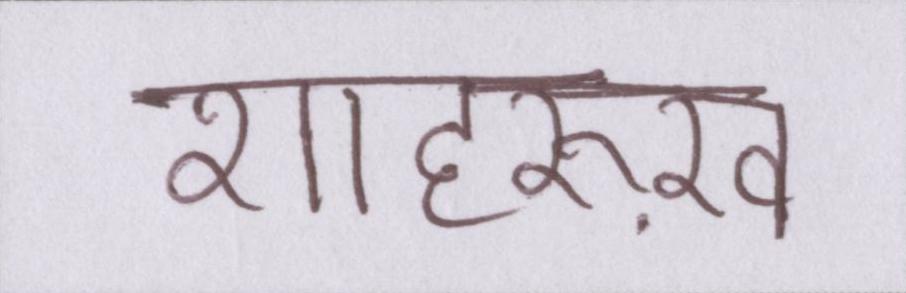 शाहरूख़